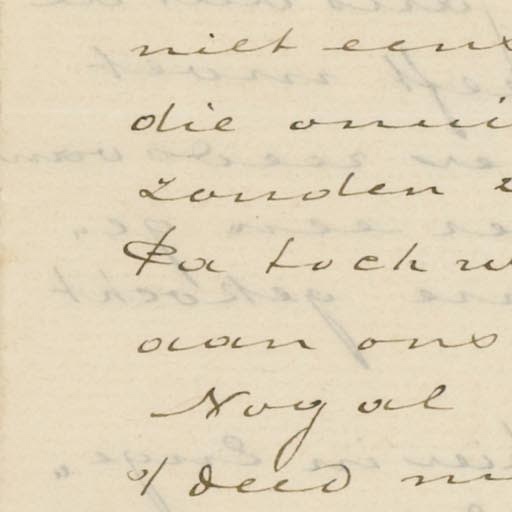 niet eens
die onwi
zonden
Pa toch w
aan ons
Nog al
deed m